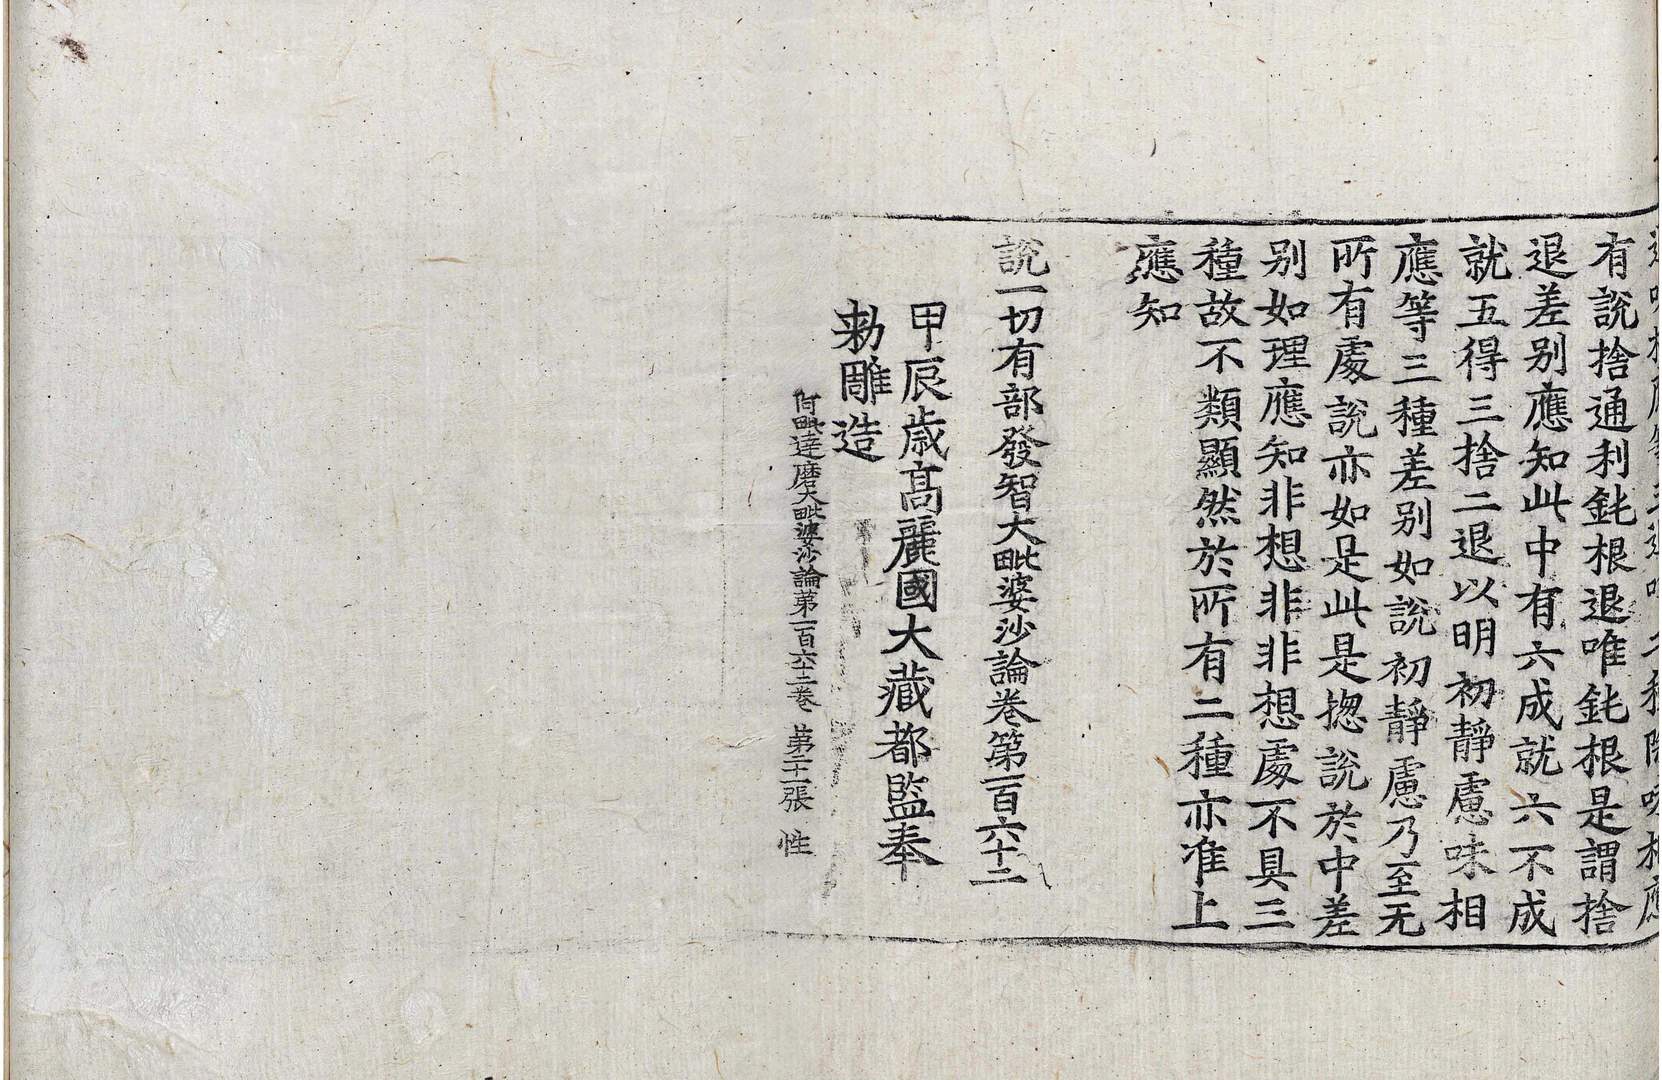 有說捨通利鈍根退唯鈍根是謂捨
退差别應知此中有六成就六不成
就五得三捨二退以明初靜慮味相
應等三種差别如說初靜慮乃至无
所有處說亦如是此是揔說於中差
别如理應知非想非非想處不具三
種故不類顯然於所有二種亦准上
應知
說一切有部發智大毗婆沙論卷第一百六十二
甲辰歲高麗國大藏都監奉
勑雕造
阿毗達磨大毗婆沙論第一百六十二卷 第二十一張 性